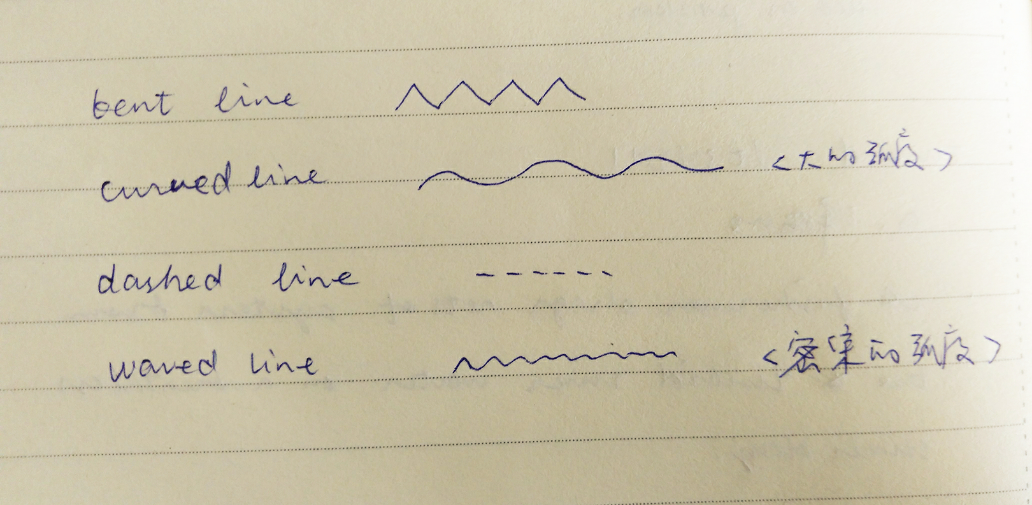 bent line
curved line <大的弧度>
dashed line
waved line <密集的弧度>